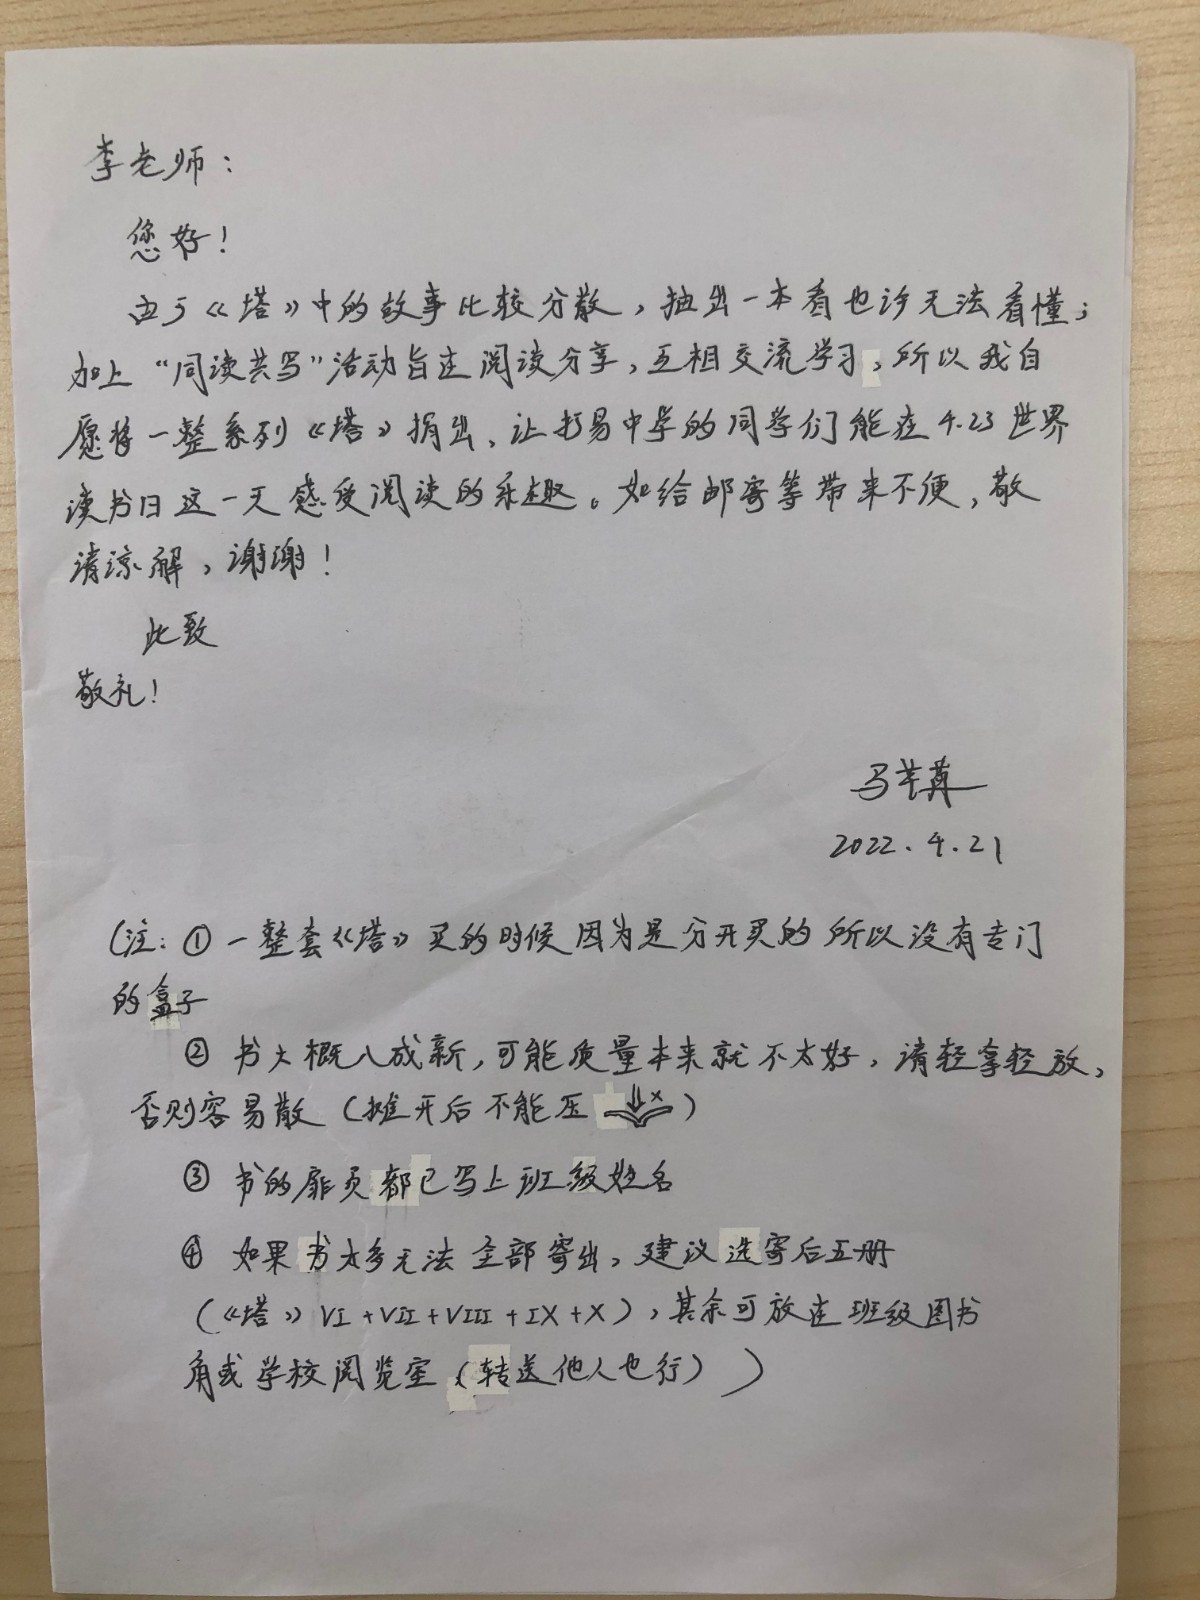 李老师：
您好！
由于《塔》中的故事比较分散，抽出一本看也许无法看懂；
加上“同读共写”活动旨在阅读分享，互相交流学习，所以我自
愿将一整系列《塔》捐出，让打易中学的同学们能在4.23世界
读书日这一天感受阅读的乐趣。如给邮寄等带来不便，敬
请谅解，谢谢！
此致
敬礼！
马
2022.4.21
（注：① 一整套《塔》买的时候因为是分开买的所以没有专门
的盒子
② 书大概八成新，可能质量本来就不太好，请轻拿轻放，
否则容易散（摊开后不能压 ×）
③ 书的扉页都已写上班级姓名
④ 如果书太多无法全部寄出，建议选寄后五册
（《塔》VI+VII+VIII+IX+X），其余可放在班级图书
角或学校阅览室（转送他人也行））